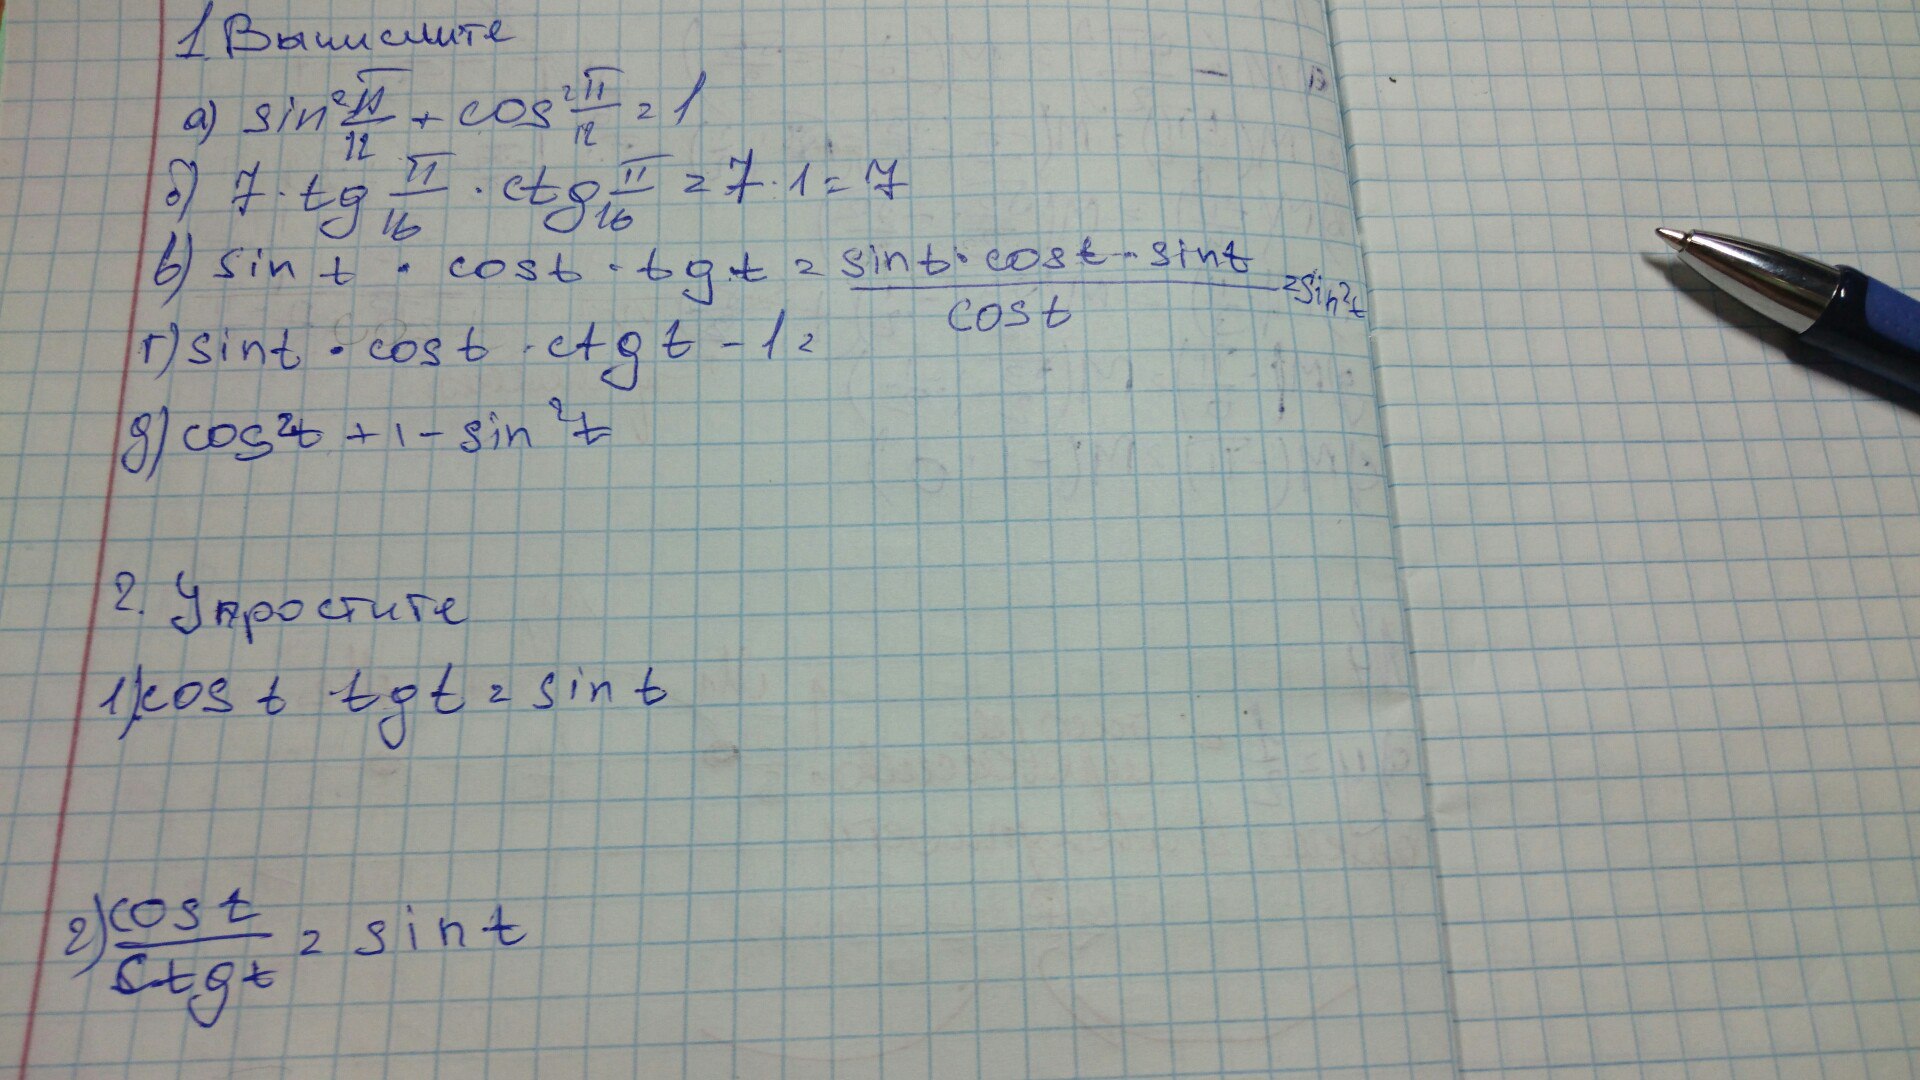 1. Вычислите
а) sin² π/12 + cos² π/12 = 1
б) 7 · tg π/16 · ctg π/16 = 7 · 1 = 7
в) sin t · cos t · tg t = sin t · cos t · sin t / cos t = sin² t
г) sin t · cos t · ctg t - 1 =
д) cos² t + 1 - sin² t
2. Упростите
1) cos t tg t = sin t
2) cos t / ctg t = sin t